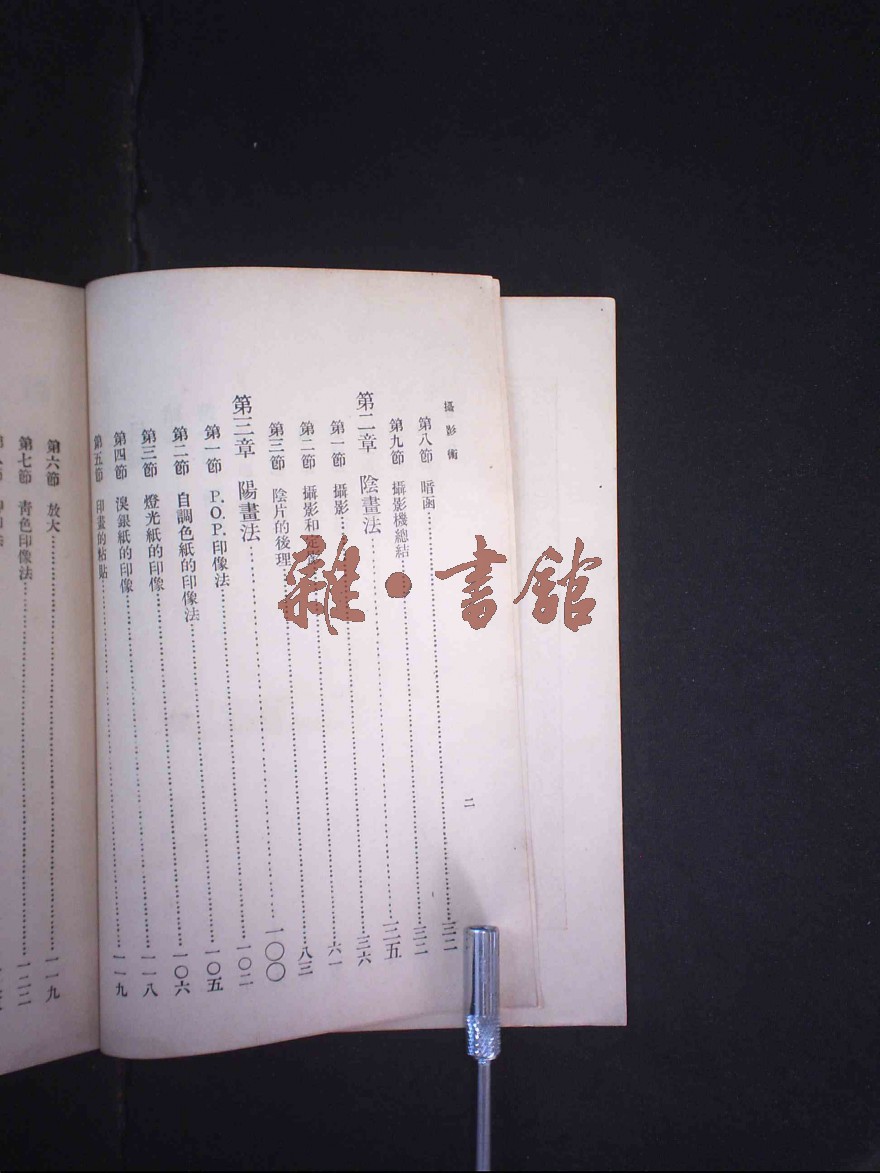 攝影術
二
第八節 暗函……三二
第九節 攝影機總結……三三
第二章 陰畫法……三五
第一節 攝影……三六
第二節 攝影和……六一
第三節 陰片的後理……八三
第三章 陽畫法……一〇〇
第一節 P.O.P.印像法……一〇二
第二節 自調色紙的印像法……一〇五
第三節 燈光紙的印像……一〇六
第四節 溴銀紙的印像……一一八
第五節 印畫的粘貼……一一九
第六節 放大……一一九
第七節 青色印像法……一二二
雜·書館